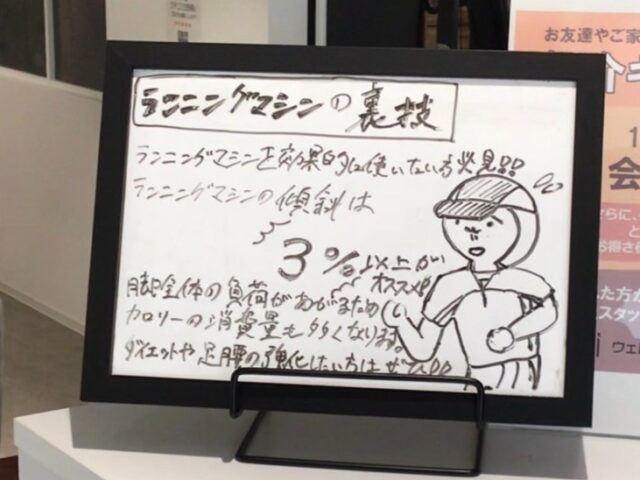 ランニングマシンの裏技
ランニングマシンを効果的に使いたい方必見!!
ランニングマシンの傾斜は
3%以上が
オススメ!
脚全体の負荷があがるため
カロリーの消費量も多くなります。
ダイエットや足腰の強化したい方はぜひ!!
お友達やご家
会
さらに、
と
お得さ
た方が
スタッ
i ウェル